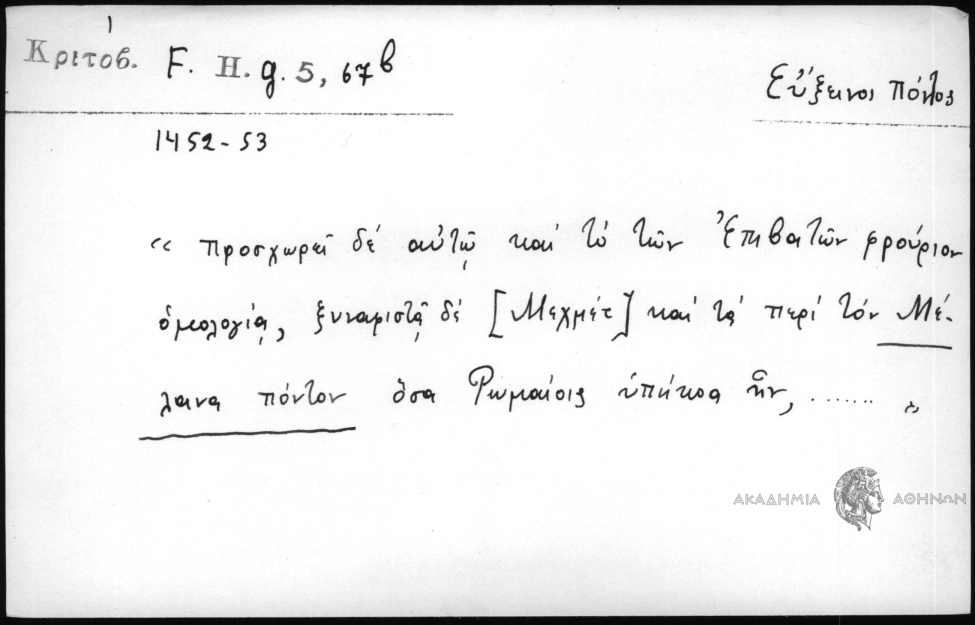 Κριτόβ. F. H. g. 5, 67β
Εὔξεινος πόντος
1452-53
« προσχωρεῖ δέ αὐτῷ καί τό τῶν Ἐπιβατῶν φρούριον
ὁμολογίᾳ, ξυναριστᾷ δέ [Μεχμέτ] καί τά περί τόν Μέ-
λαινα πόντον ὅσα Ρωμαίοις ὑπήκοα ἦν, ....... »
ΑΚΑΔΗΜΙΑ ΑΘΗΝΩΝ